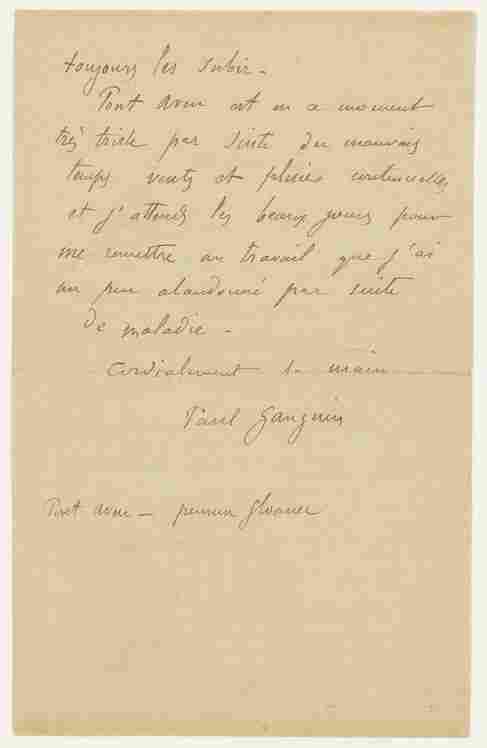 toujours les subir -
Pont Aven est en ce moment
très triste par suite du mauvais
temps vents et pluies continuelles
et j'attends les beaux jours pour
me remettre au travail que j'ai
un peu abandonné par suite
de maladie -
Cordialement la main
Paul Gauguin
Pont Aven - pension Gloanec